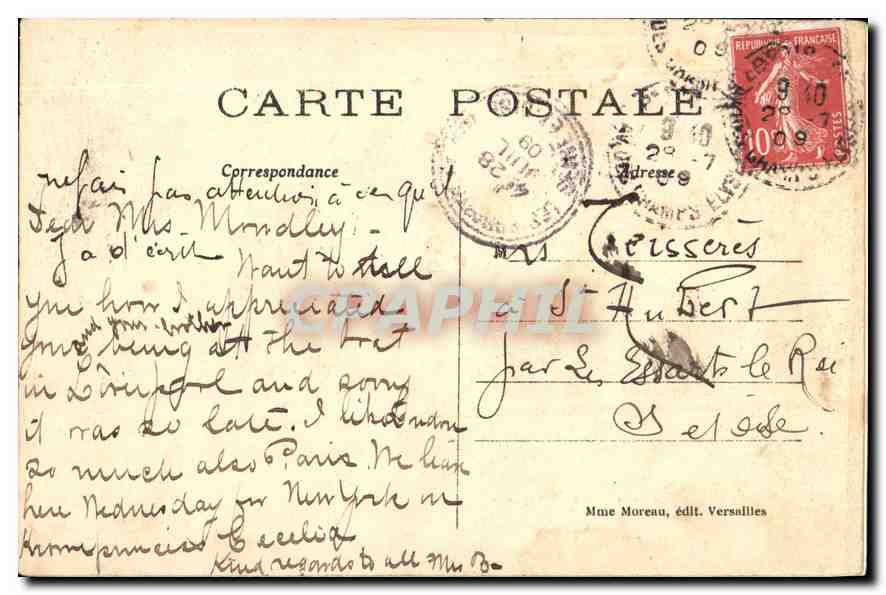 CARTE POSTALE
Correspondance
Adresse
REPUBLIQUE FRANÇAISE
10
POSTES
9 10
28 - 7
09
9 10
28 - 7
09
CHAMPS ELYS
28
JUIL
09
ne fais pas attention à ce qu'il
Dear Mrs. Mondley:
y a d'écrit
Want to tell
you how I appreciated
and your brother
you being at the boat
in Liverpool and sorry
it was so late. I like London
so much also Paris. We leave
here Wednesday for New York on
Kronprincess Cecelia
Kind regards to all Mrs B-
Mrs Teisserès
à St Hubert
par Les Essarts le Roi
S et Oise.
Mme Moreau, édit. Versailles
CPAPHIL